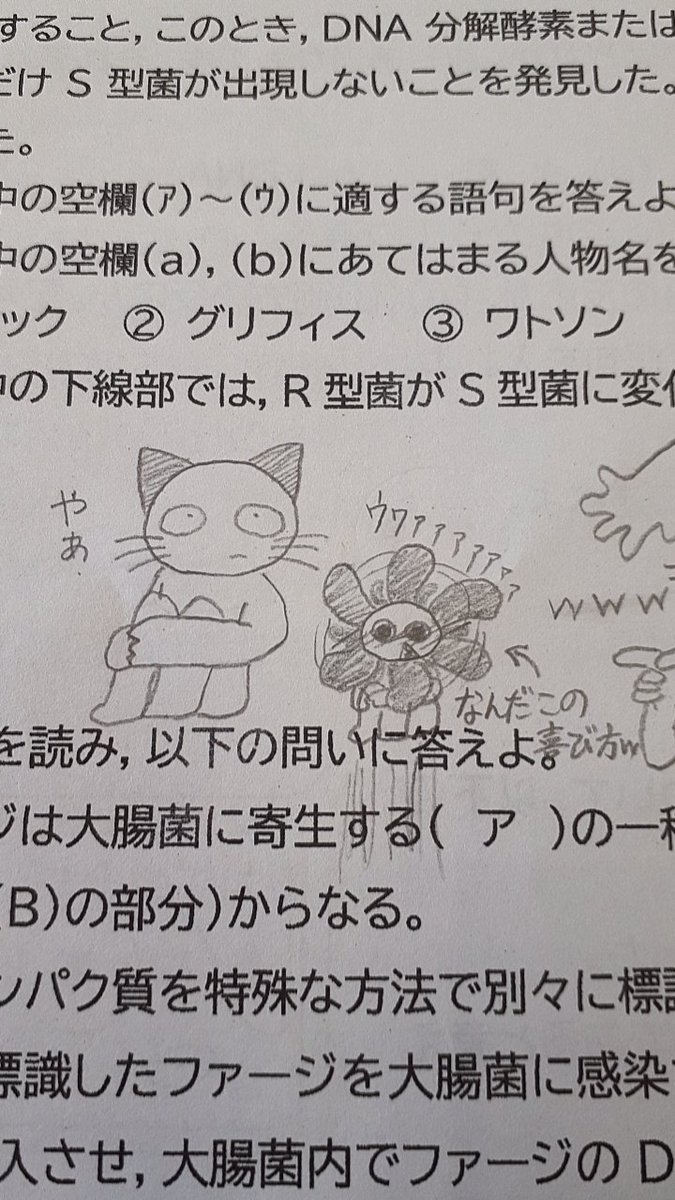 すること，このとき，DNA 分解酵素または
だけ S 型菌が出現しないことを発見した。
た。
中の空欄(ｱ)～(ｳ)に適する語句を答えよ
中の空欄(a)，(b)にあてはまる人物名を
ック ② グリフィス ③ ワトソン
中の下線部では，R 型菌が S 型菌に変化
やあ
ウワァァァァァァァ
www
なんだこの
喜び方w
を読み，以下の問いに答えよ。
ジは大腸菌に寄生する( ア )の一種
(B)の部分)からなる。
ンパク質を特殊な方法で別々に標識
標識したファージを大腸菌に感染
入させ，大腸菌内でファージの D